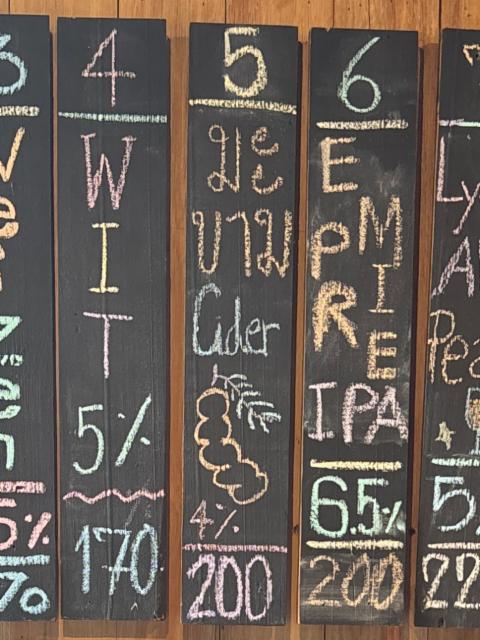 3
5%
4
W
I
T
5%
170
5
มะ
ขาม
Cider
4%
200
6
E
M
P
I
R
E
IPA
6.5%
200
Ly
5%